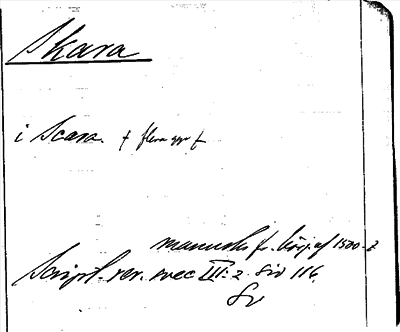 Skara
i Scara. + flera ggr +
manuskr fr. börj. af 1500-t
Script. rer. svec III:2. sid 116.
Sv